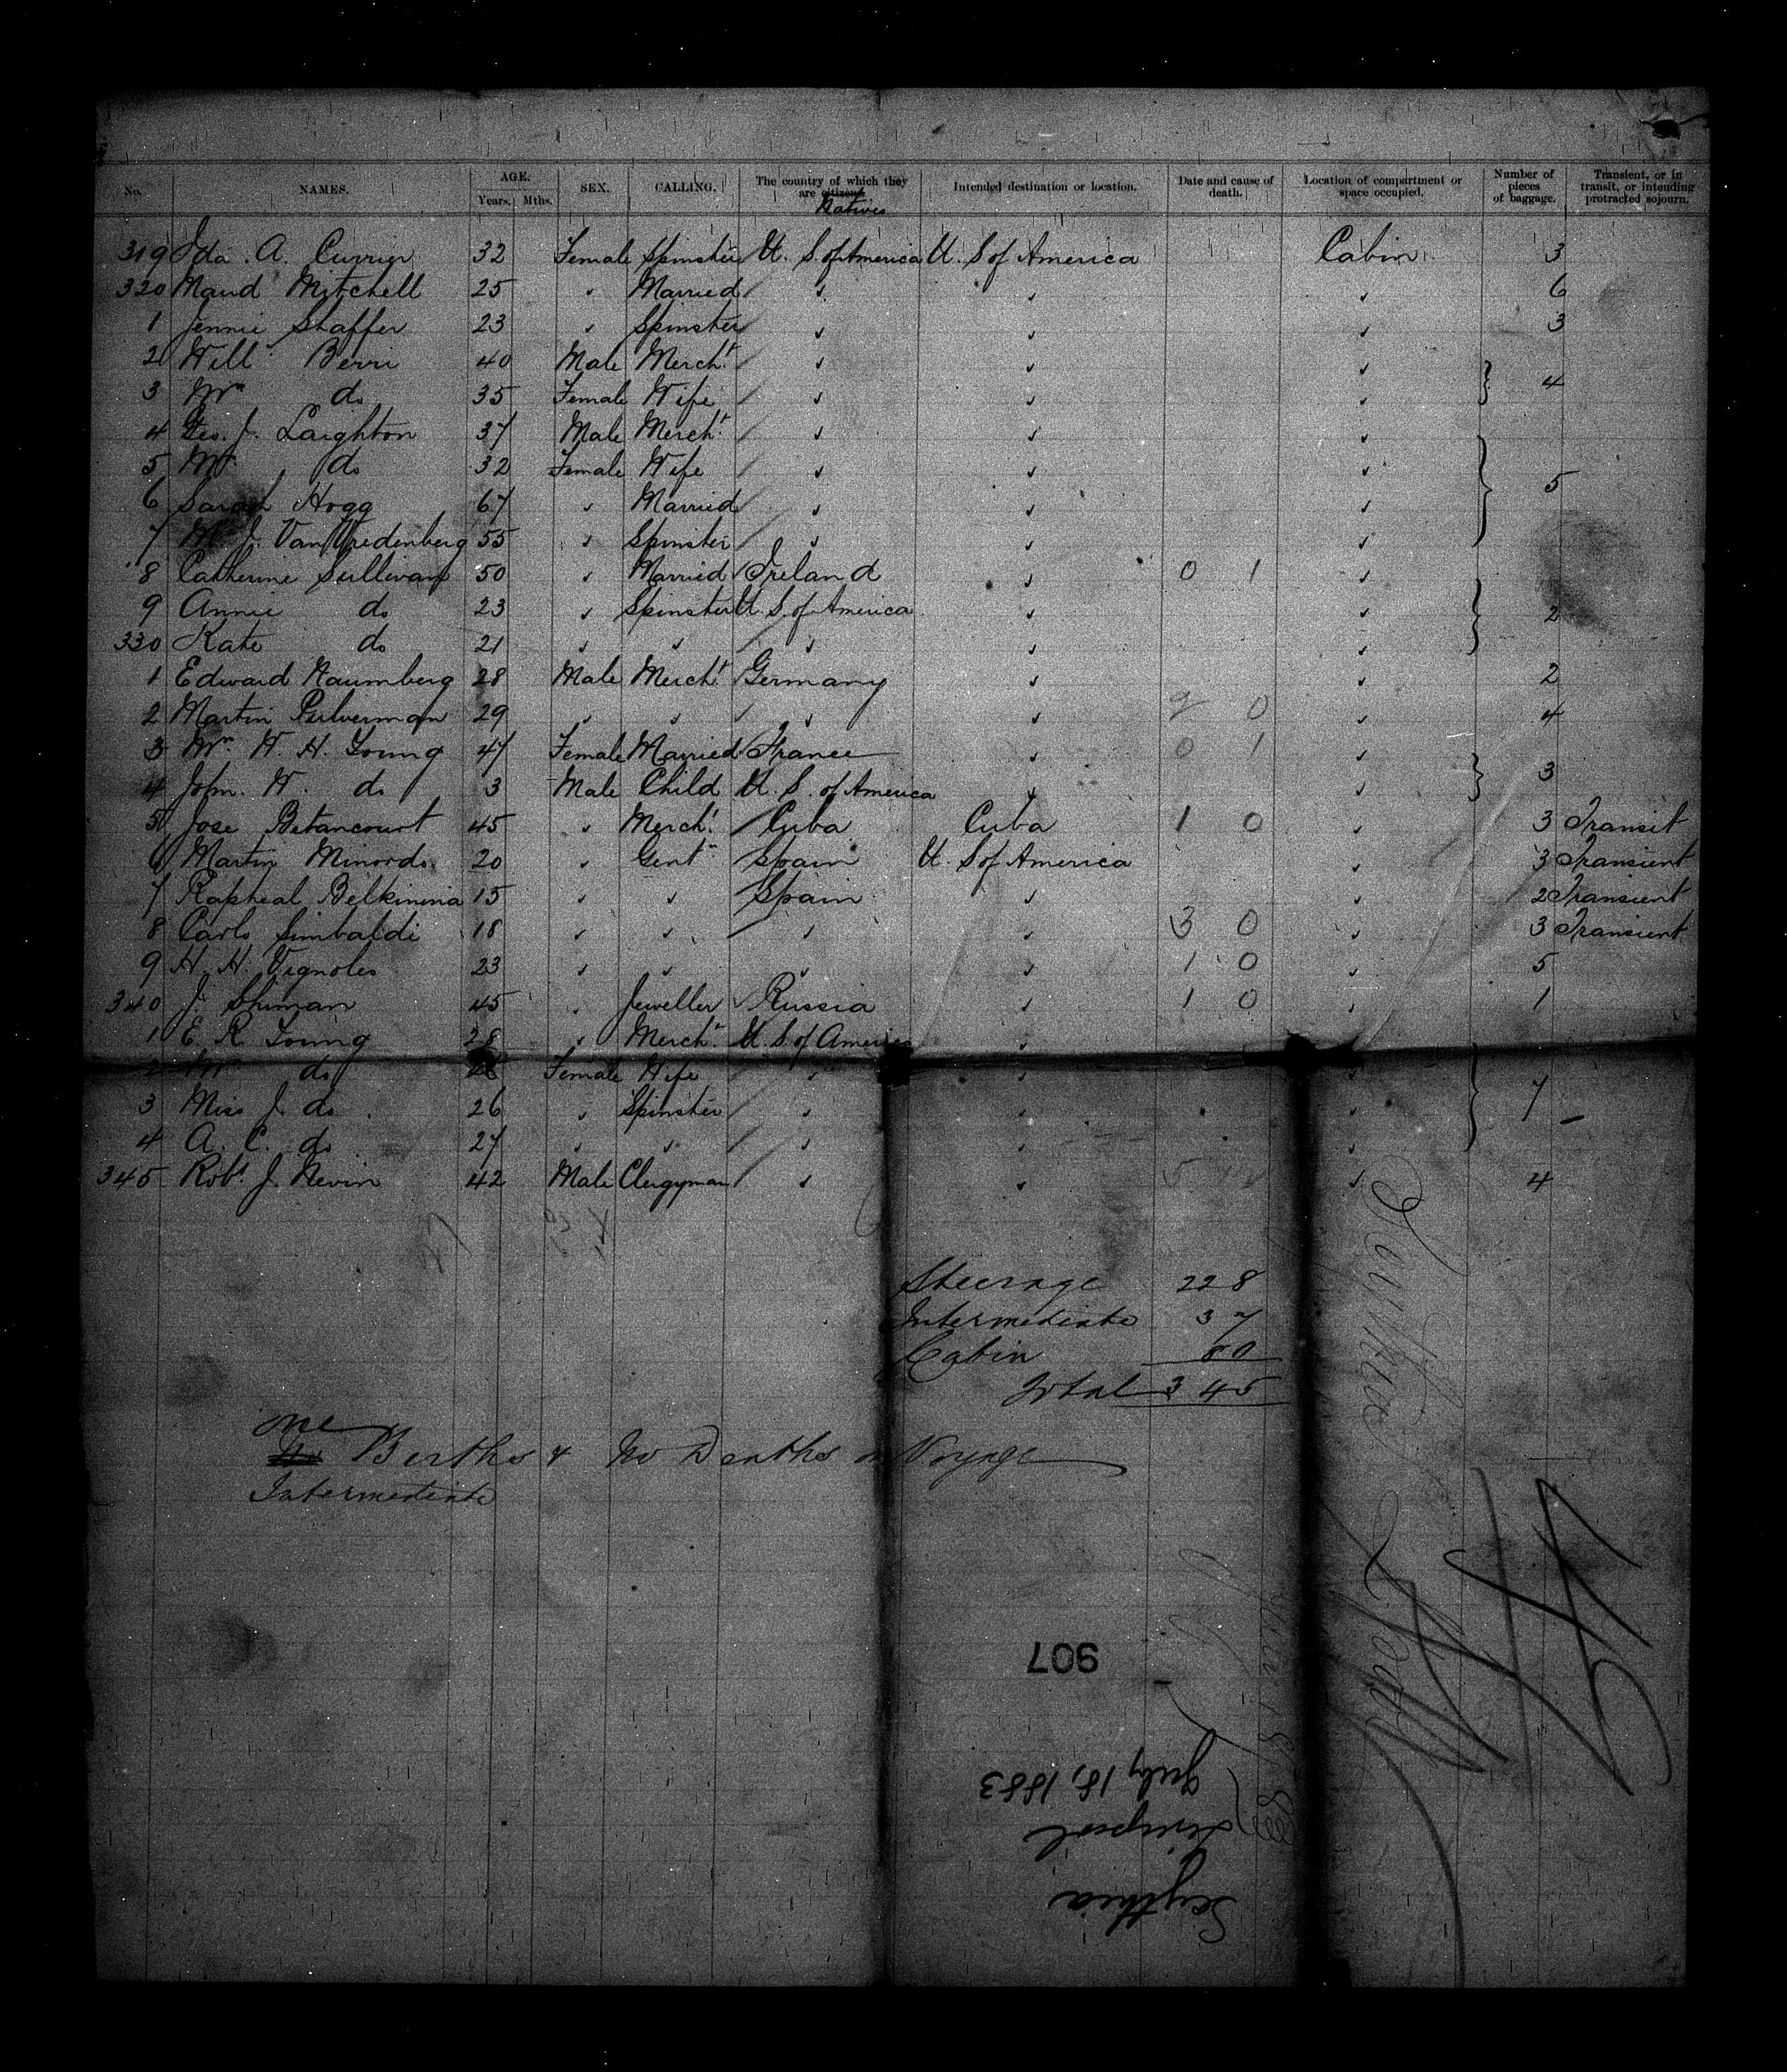 No. NAMES. AGE. Years. Mths. SEX. CALLING. The country of which they are citizens Natives Intended destination or location. Date and cause of death. Location of compartment or space occupied. Number of pieces of baggage. Transient, or in transit, or intending protracted sojourn.
319 Ida A. Currier 32 Female Spinster U. S. of America U. S of America Cabin 3
320 Maud Mitchell 25 " Married " " " 6
1 Jennie Shaffer 23 " Spinster " " " 3
2 Will Berri 40 Male Merch.t " " "
3 Mrs do 35 Female Wife " " " 4
4 Geo. J. Laighton 37 Male Merch.t " " "
5 Mrs do 32 Female Wife " " "
6 Sarah Hogg 67 " Married " " " 5
7 J. Van Vredenberg 55 " Spinster " " "
8 Catherine Sullivan 50 " Married Ireland " 0 1 "
9 Annie do 23 " Spinster U. S. of America " " 2
330 Kate do 21 " " " " "
1 Edward Naumberg 28 Male Merch.t Germany " " 2
2 Martin 29 " " " " 2 0 " 4
3 Mrs. H. H. Young 47 Female Married France " 0 1 "
4 John. H. do 3 Male Child U. S. of America " " 3
5 Jose Betancourt 45 " Merch.t Cuba Cuba 1 0 " 3 Transit
6 Martin Minordo 20 " Gent.n Spain U. S of America " 3 Transient
7 Rapheal Belkinina 15 " " Spain " " 2 Transient
8 Carlo Simbaldi 18 " " " " 3 0 " 3 Transient
9 H. H. Vignoles 23 " " " " 1 0 " 5
340 J. Shiman 45 " Jeweller Russia " 1 0 " 1
1 E. R. Young 28 " Merch.t U. S. of America "
2 Mrs do Female Wife " " "
3 Miss J. do 26 " Spinster " " " 7
4 A. C. do 27 " " " " "
345 Robt. J. Nevin 42 Male Clergyman " " " 4
Steerage 228
Intermediate 37
Cabin 80
Total 345
one
No Berths & No Deaths on Voyage
Intermediate
907
July 18, 1883
Liverpool
Scythia